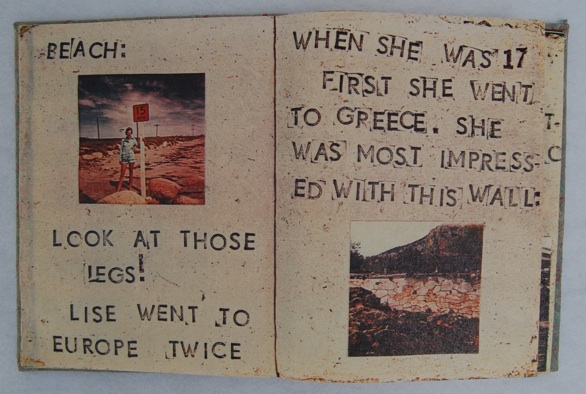 BEACH:
15
LOOK AT THOSE
LEGS!
LISE WENT TO
EUROPE TWICE
WHEN SHE WAS 17
FIRST SHE WENT
TO GREECE. SHE
WAS MOST IMPRESS-
ED WITH THIS WALL:
T-
C